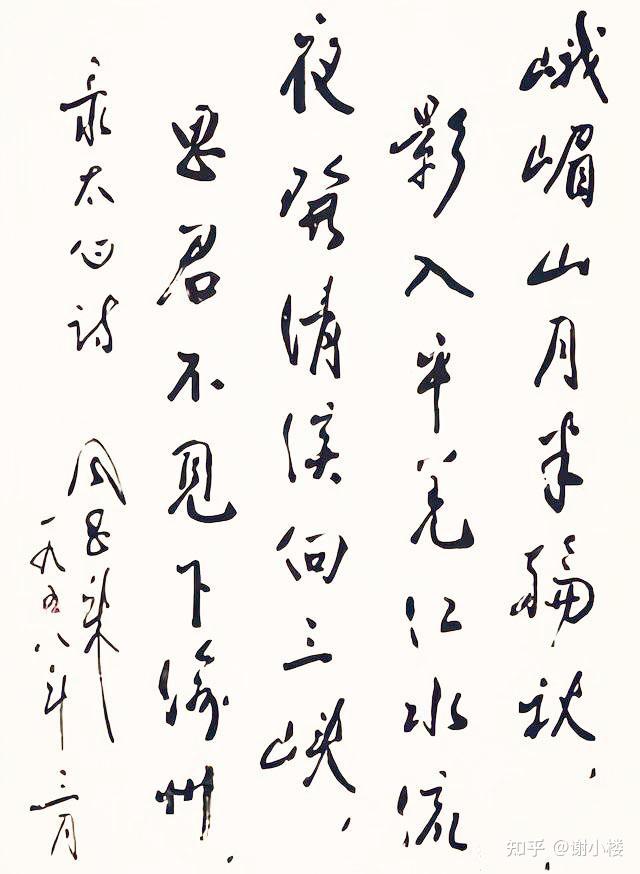 峨嵋山月半輪秋,
影入平羌江水流.
夜發清溪向三峡,
思君不見下渝州.
录太白诗
周恩来
一九五八年三月
知乎 @谢小楼